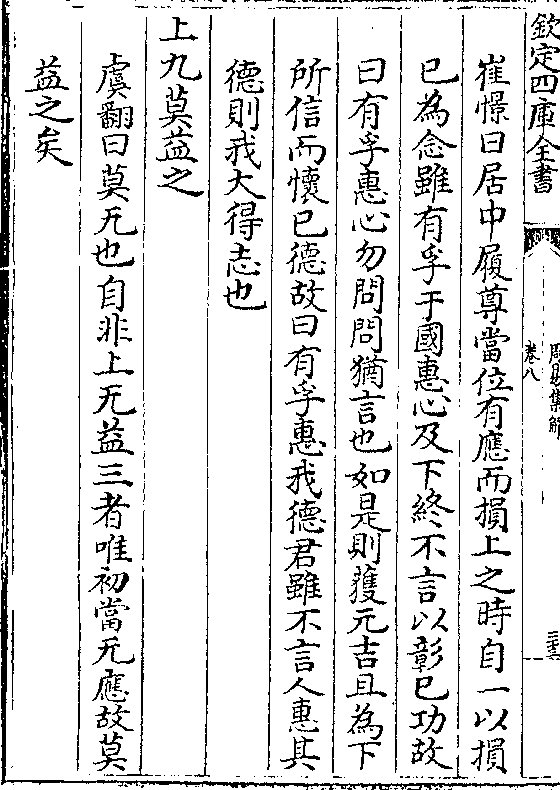 欽定四庫全書
周易集解
卷八
三十三
崔憬曰居中履尊當位有應而損上之時自一以損
已為念雖有孚于國惠心及下終不言以彰已功故
曰有孚惠心勿問問猶言也如是則獲元吉且為下
所信而懷已德故曰有孚惠我德君雖不言人惠其
德則我大得志也
上九莫益之
虞翻曰莫无也自非上无益三者唯初當无應故莫
益之矣